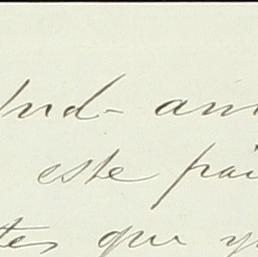 Sud-am
este pai
tes que y